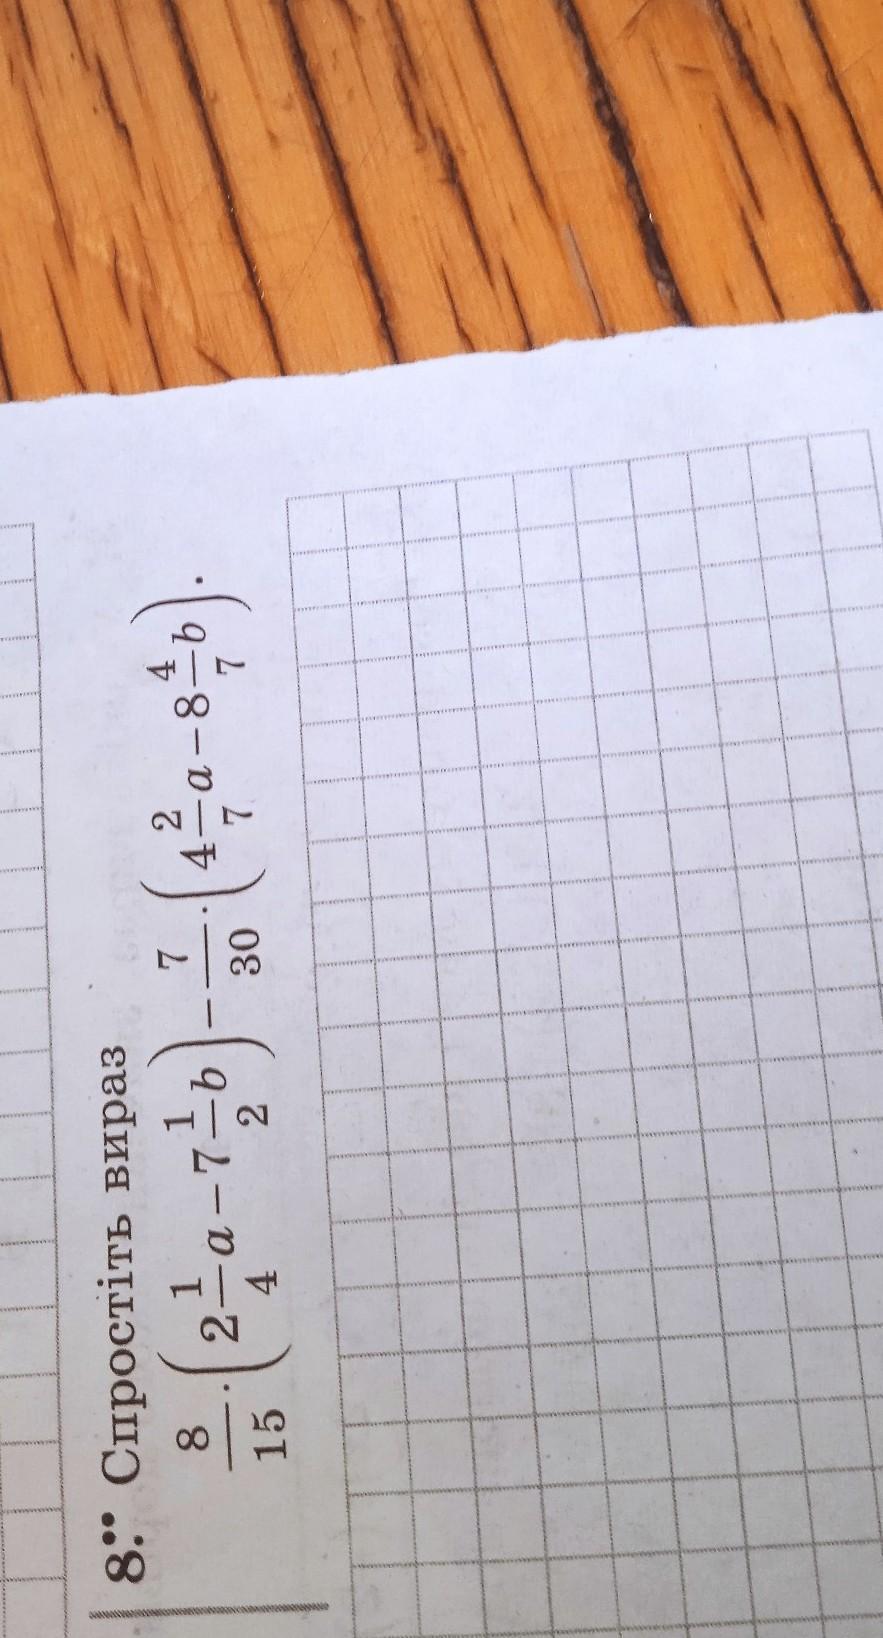 8.•• Спростіть вираз
8/15 · (2 1/4 a − 7 1/2 b) − 7/30 · (4 2/7 a − 8 4/7 b).